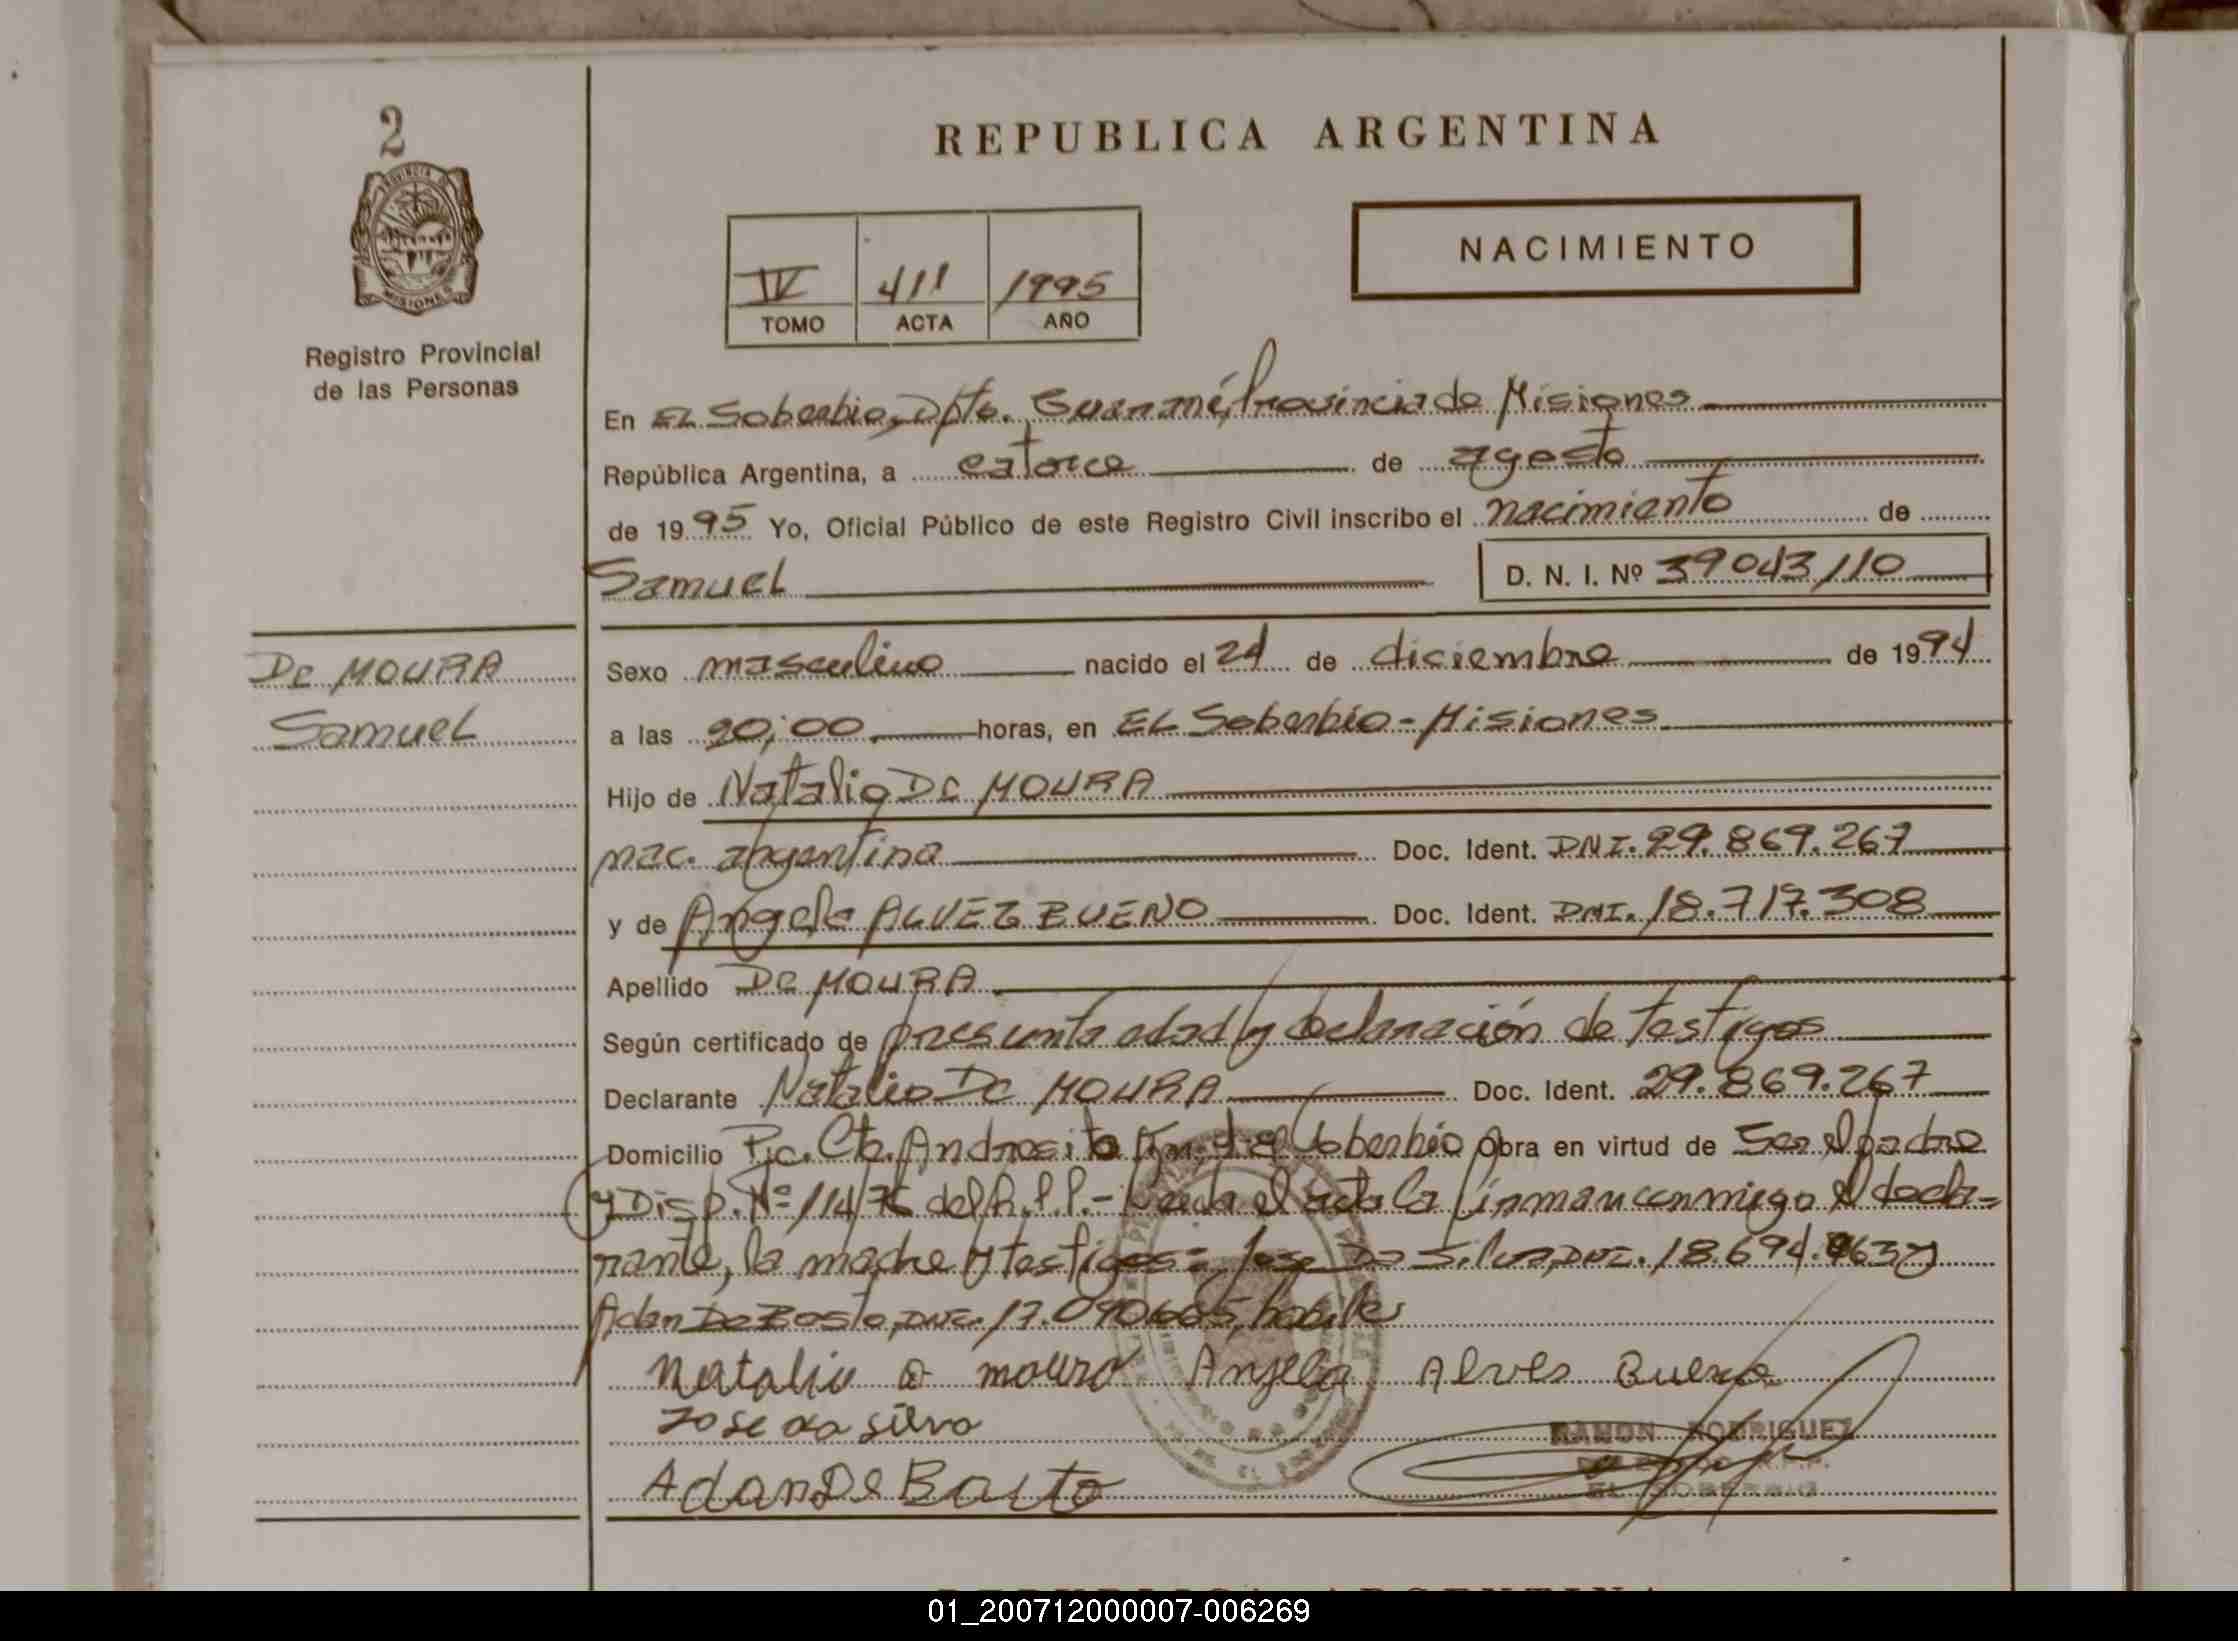 2
PROVINCIA DE
MISIONES
Registro Provincial
de las Personas
REPUBLICA ARGENTINA
NACIMIENTO
IV 411 1995
TOMO ACTA AÑO
En EL Soberbio, Dpto. Guaraní, Provincia de Misiones
República Argentina, a catorce de agosto
de 1995 Yo, Oficial Público de este Registro Civil inscribo el nacimiento de
Samuel D. N. I. Nº 39043110
De MOURA
Samuel
Sexo masculino nacido el 24 de diciembre de 1994
a las 20;00 horas, en EL Soberbio - Misiones
Hijo de Natalio De MOURA
nac. argentina Doc. Ident. DNI. 29.869.267
y de Angela ALVEZ BUENO Doc. Ident. DNI. 18.717.308
Apellido De MOURA
Según certificado de presunta edad y declaración de testigos
Declarante Natalio De MOURA Doc. Ident. 29.869.267
Domicilio Pje. Cte. Andresito El Soberbio Obra en virtud de Ser el padre
y Disp. Nº 114/76 del R.P.P.- Leida el acta la firman conmigo el decla-
rante, la madre y testigos: Jose Da Silva, DNI. 18.694. y
Adan De Basto, DNI. 17.090665, habiles
Natalio D mouro Anjela Alves Bueno
Jose da silva
Adan De Basto
RAMON RODRIGUEZ
R.P.P.
EL SOBERBIO
REPUBLICA ARGENTINA
01_200712000007-006269